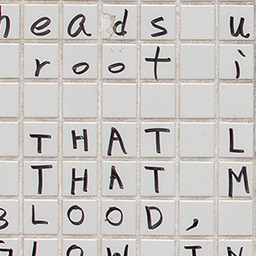 heads u
root i
THAT L
THAT M
BLOOD,
GLOW IN